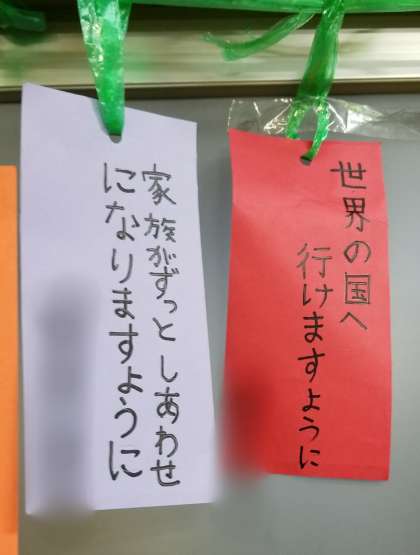 家族がずっとしあわせ
になりますように
世界の国へ
行けますように